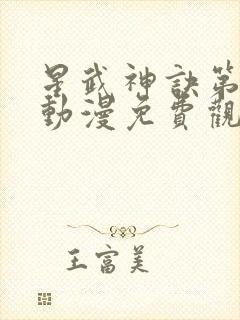 星武神訣第
動漫免費觀
王富美